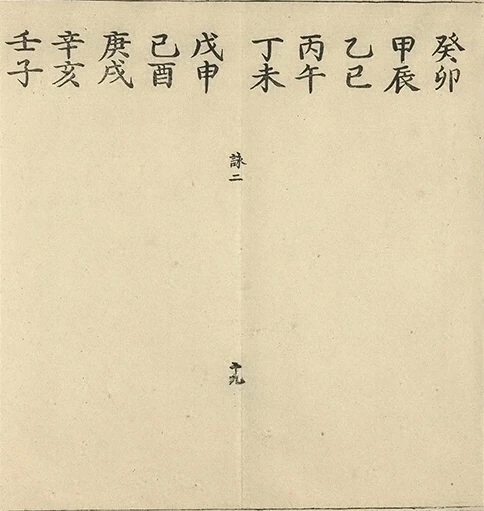 癸卯
甲辰
乙巳
丙午
丁未
詠二
十九
戊申
己酉
庚戌
辛亥
壬子